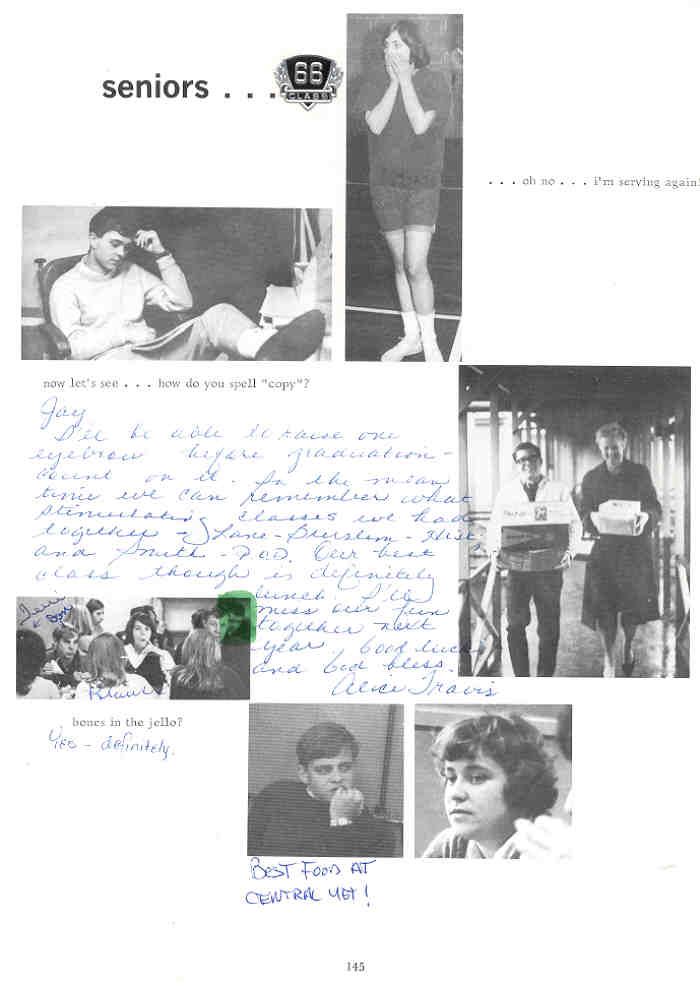 seniors . . .
66
CLASS
. . . oh no . . . i'm serving again!
now let's see . . . how do you spell "copy"?
Jay
I'll be able to raise one
eyebrow before graduation -
count on it. In the mean
time we can remember what
stimulating classes we had
together - Lane - - Hist.
and Smith - P.O.D. Our best
class though is definitely
lunch I'll
miss our fun
together next
year. Good luck
and God bless.
Alice Travis
bones in the jello?
Yes - definitely.
BEST FOOD AT
CENTRAL YET!
145